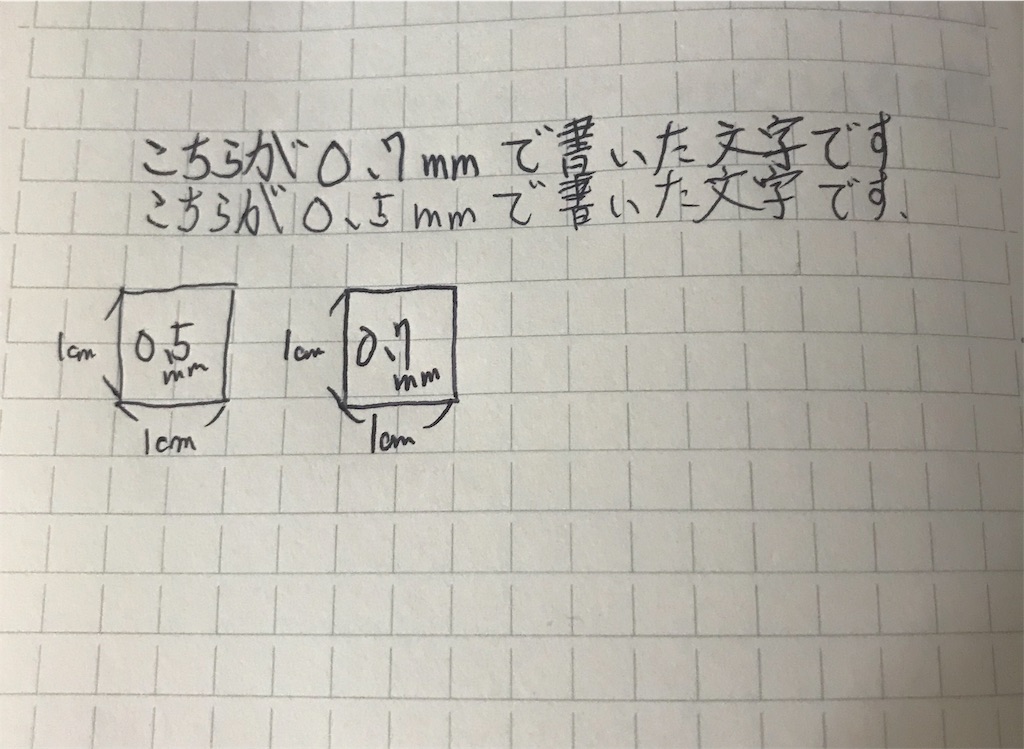 こちらが0.7mmで書いた文字です
こちらが0.5mmで書いた文字です.
1cm
0.5
mm
1cm
1cm
0.7
mm
1cm